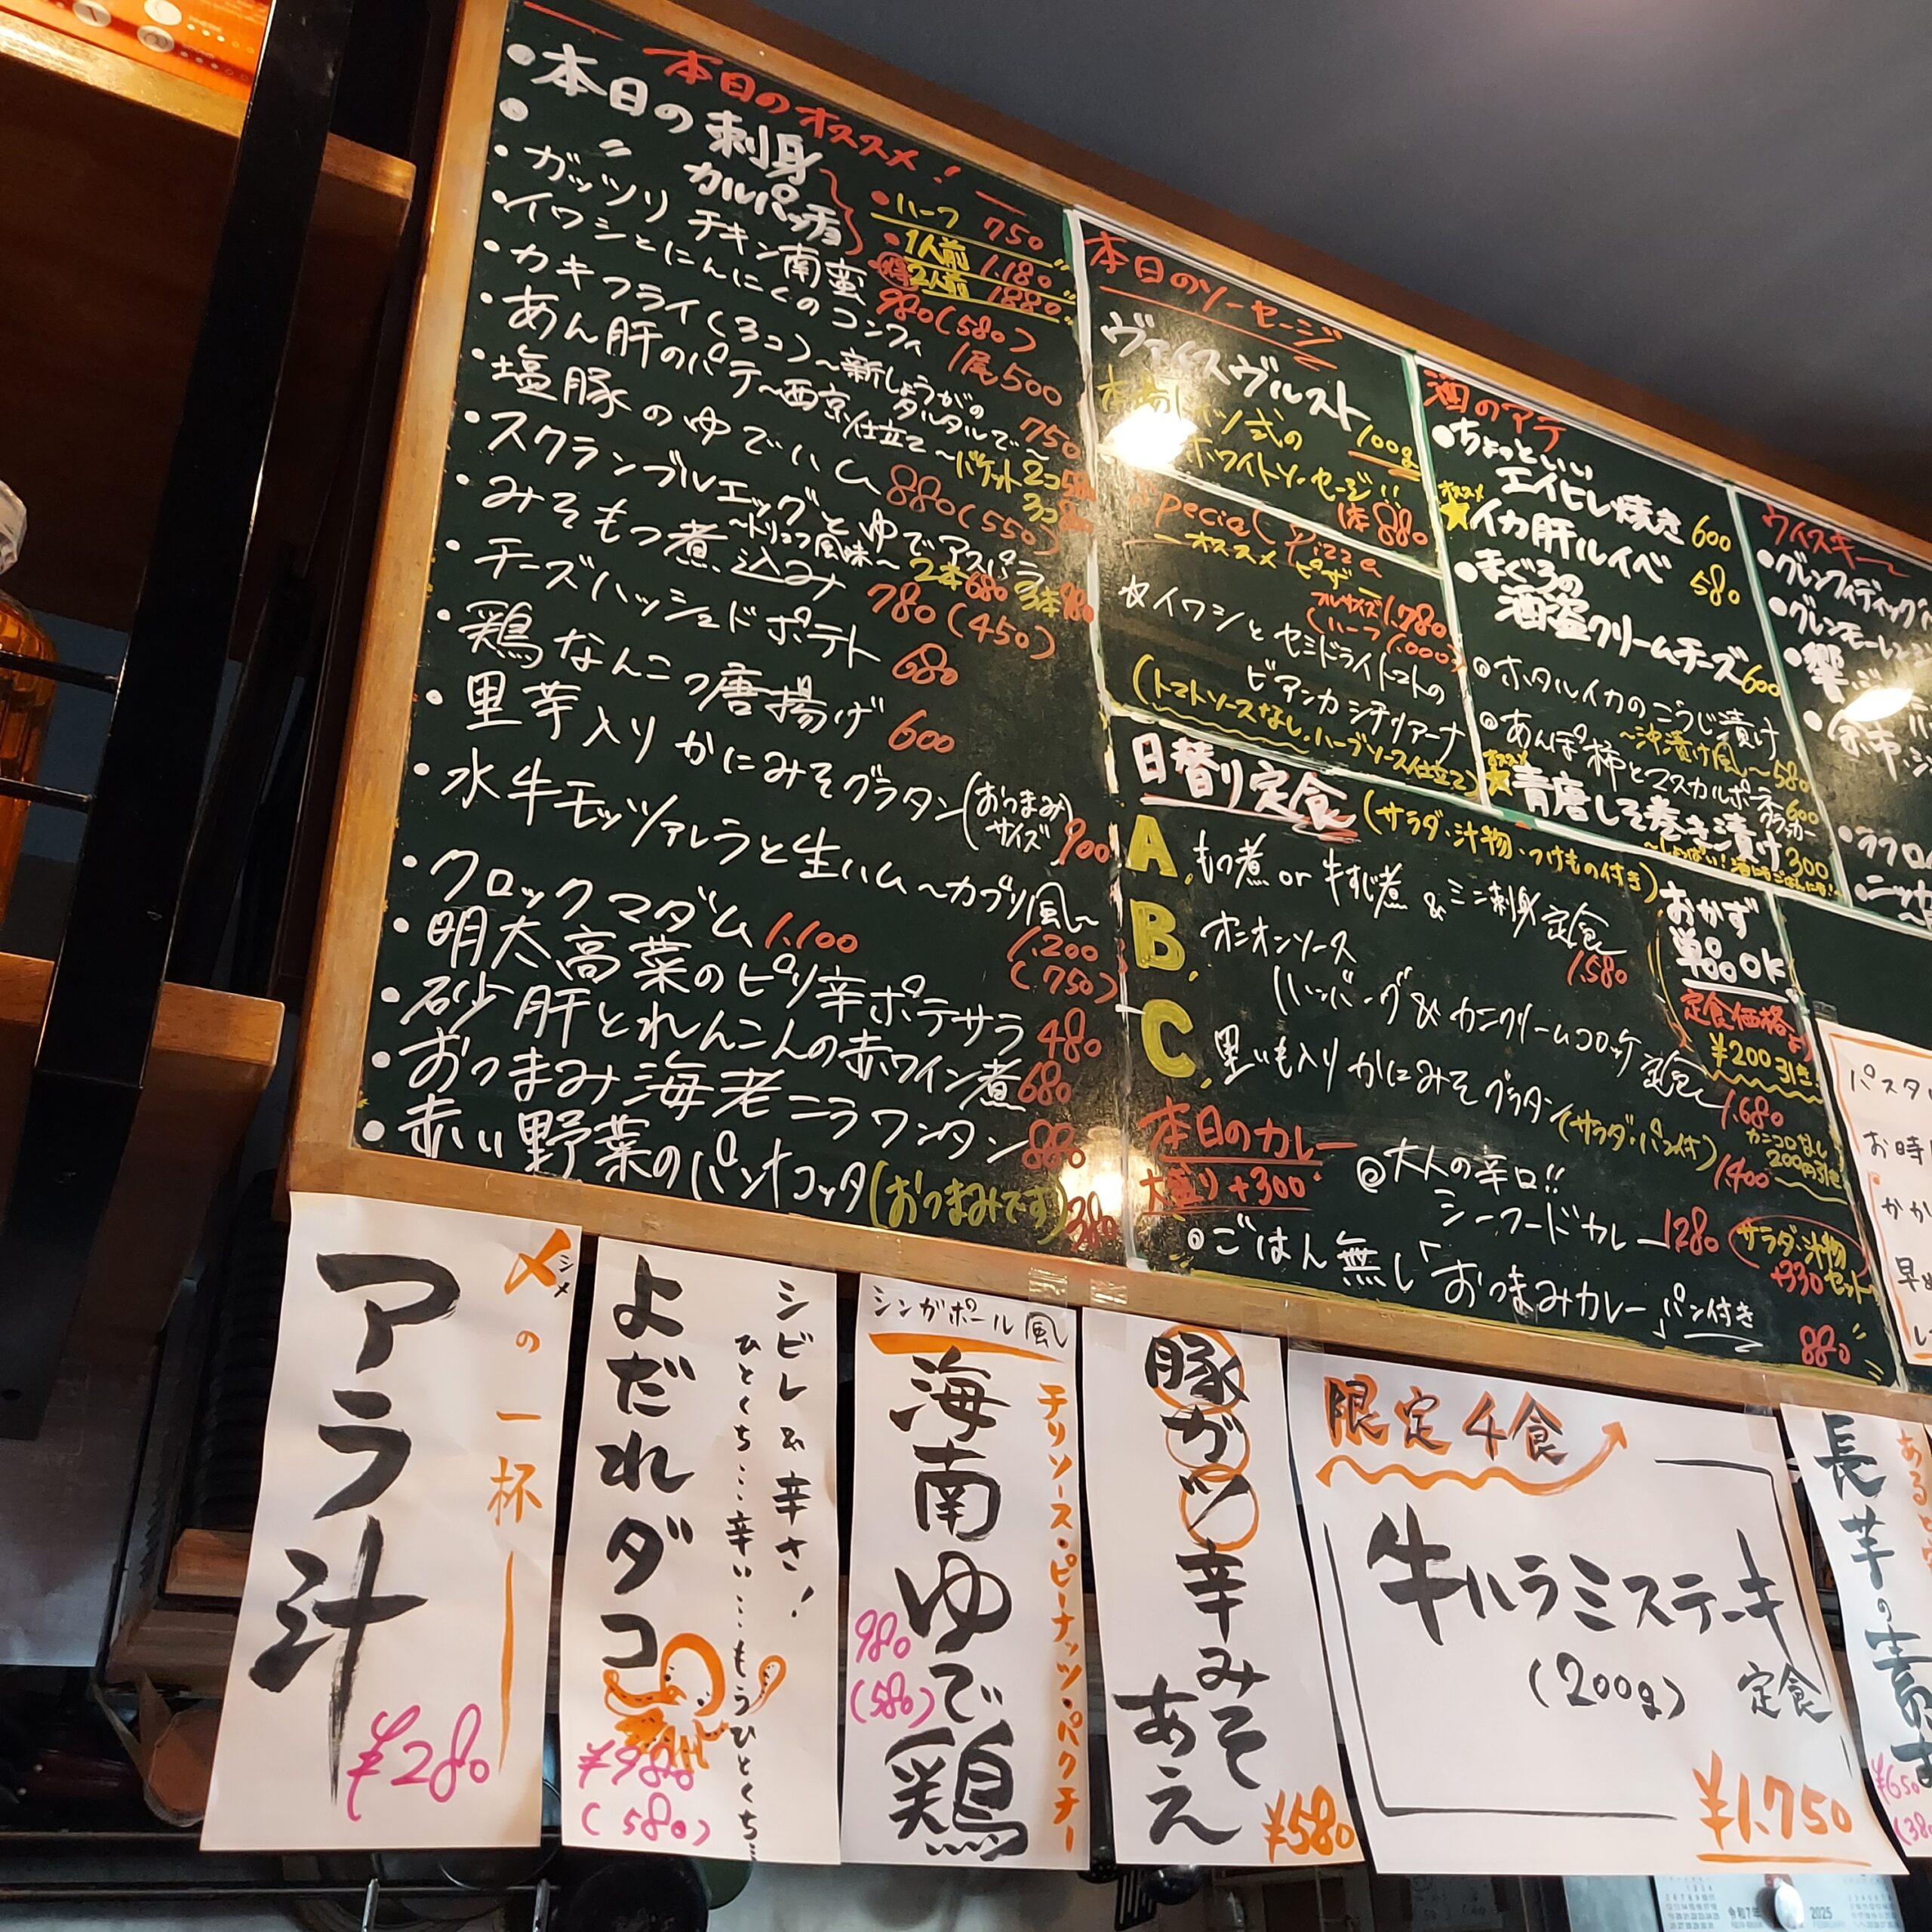 本日のオススメ!
・本日の刺身
・〃 カルパッチョ
・ハーフ 750
・1人前 1.180
得2人前 1880
・ガッツリ チキン南蛮 980(580)
・イワシとにんにくのコンフィ 1尾500
・カキフライ(3コ)~新しょうがのタルタルで~ 750
・あん肝のパテ~西京仕立て~バケット2コ
3コ
・塩豚のゆでハム 880(550)
・スクランブルエッグとゆでアスパラ
~トリュフ風味~ 2本680 3本980
・みそもつ煮込み 780(450)
・チーズハッシュドポテト 680
・鶏なんこつ唐揚げ 600
・里芋入りかにみそグラタン(おつまみサイズ) 900
・水牛モッツァレラと生ハム~カプリ風~ 1.200
(750)
・クロックマダム 1.100
・明太高菜のピリ辛ポテサラ 480
・砂肝とれんこんの赤ワイン煮 680
・おつまみ海老ニラワンタン 880
・赤い野菜のパンナコッタ(おつまみです) 380
本日のソーセージ
ヴァイスヴルスト
100g
本場ドイツ式の
ホワイトソーセージ!!
1本 880
Special Pizza
オススメ ピザ
フルサイズ 1.780
(ハーフ 1.000)
☆イワシとセミドライトマトの
ビアンカ シチリアーナ
(トマトソースなし.ハーブソース仕立て)
酒のアテ
・ちょっといい
エイヒレ焼き 600
オススメ
★イカ肝ルイベ 580
・まぐろの
酒盗クリームチーズ 600
◎ホタルイカのこうじ漬け
~沖漬け風~ 580
◎あんぽ柿とマスカルポーネ
クラッカー 600
オススメ
★青唐しそ巻き漬け 300
ウイスキー
・グレンフィディック
・グレンモーレンジ
・響
・余市
日替り定食(サラダ・汁物・つけもの付き)
A. もつ煮 or 牛すじ煮 & ミニ刺身定食 1.580
B. オニオンソース
ハンバーグ & カニクリームコロッケ定食 1.680
カニコロなし
200円引き
C. 里いも入りかにみそグラタン(サラダ・パン付) 1.400
おかず
単品OK
定食価格より
¥200引き
本日のカレー
大盛り+300
◎大人の辛口!!
シーフードカレー 1280
サラダ・汁物
+330セット
◎ごはん無し「おつまみカレー」パン付き
880
パスタ
お時
かか
早め
〆の一杯
シメ
アラ汁
¥280
シビレ&辛さ!
ひとくち…辛い…もうひとくち…
よだれダコ
¥980
(580)
シンガポール風
チリソース・ピーナッツ・パクチー
海南ゆで鶏
980
(580)
豚ガツ辛みそ
あえ
¥580
限定4食
牛ハラミステーキ
(200g) 定食
¥1.750
長芋の素
¥650
令和7年 2025